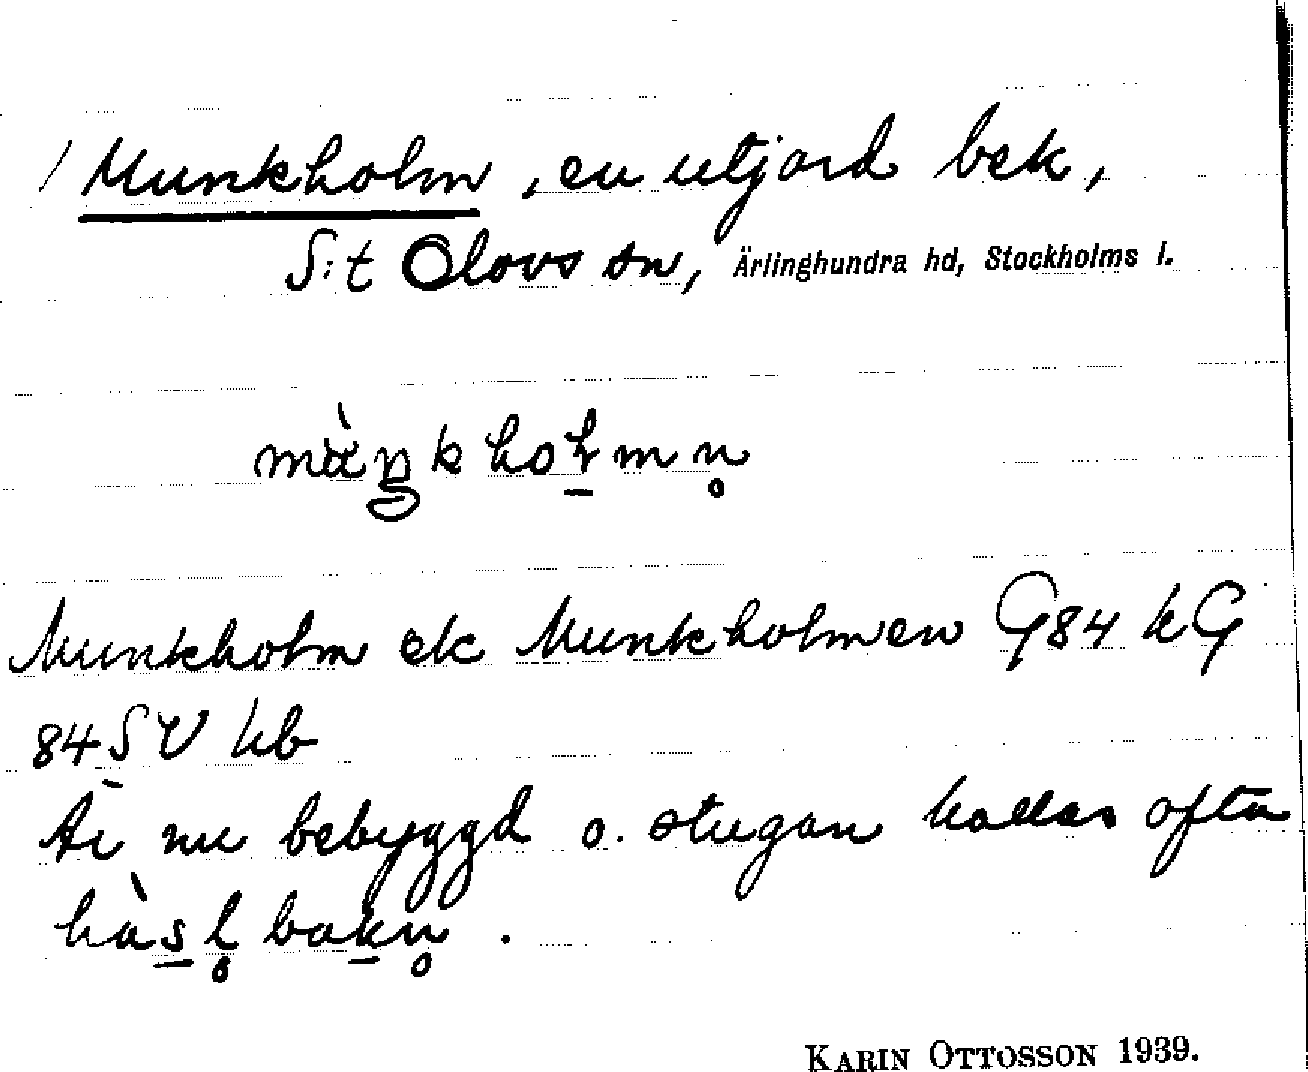 / Munkholm, en utjord bek,
S:t Olovs sn, Ärlinghundra hd, Stockholms l.
Munkholm ek Munkholmen G84 kG
84 SV hb
Är nu bebyggd o. stugan kallas ofta
KARIN OTTOSSON 1939.